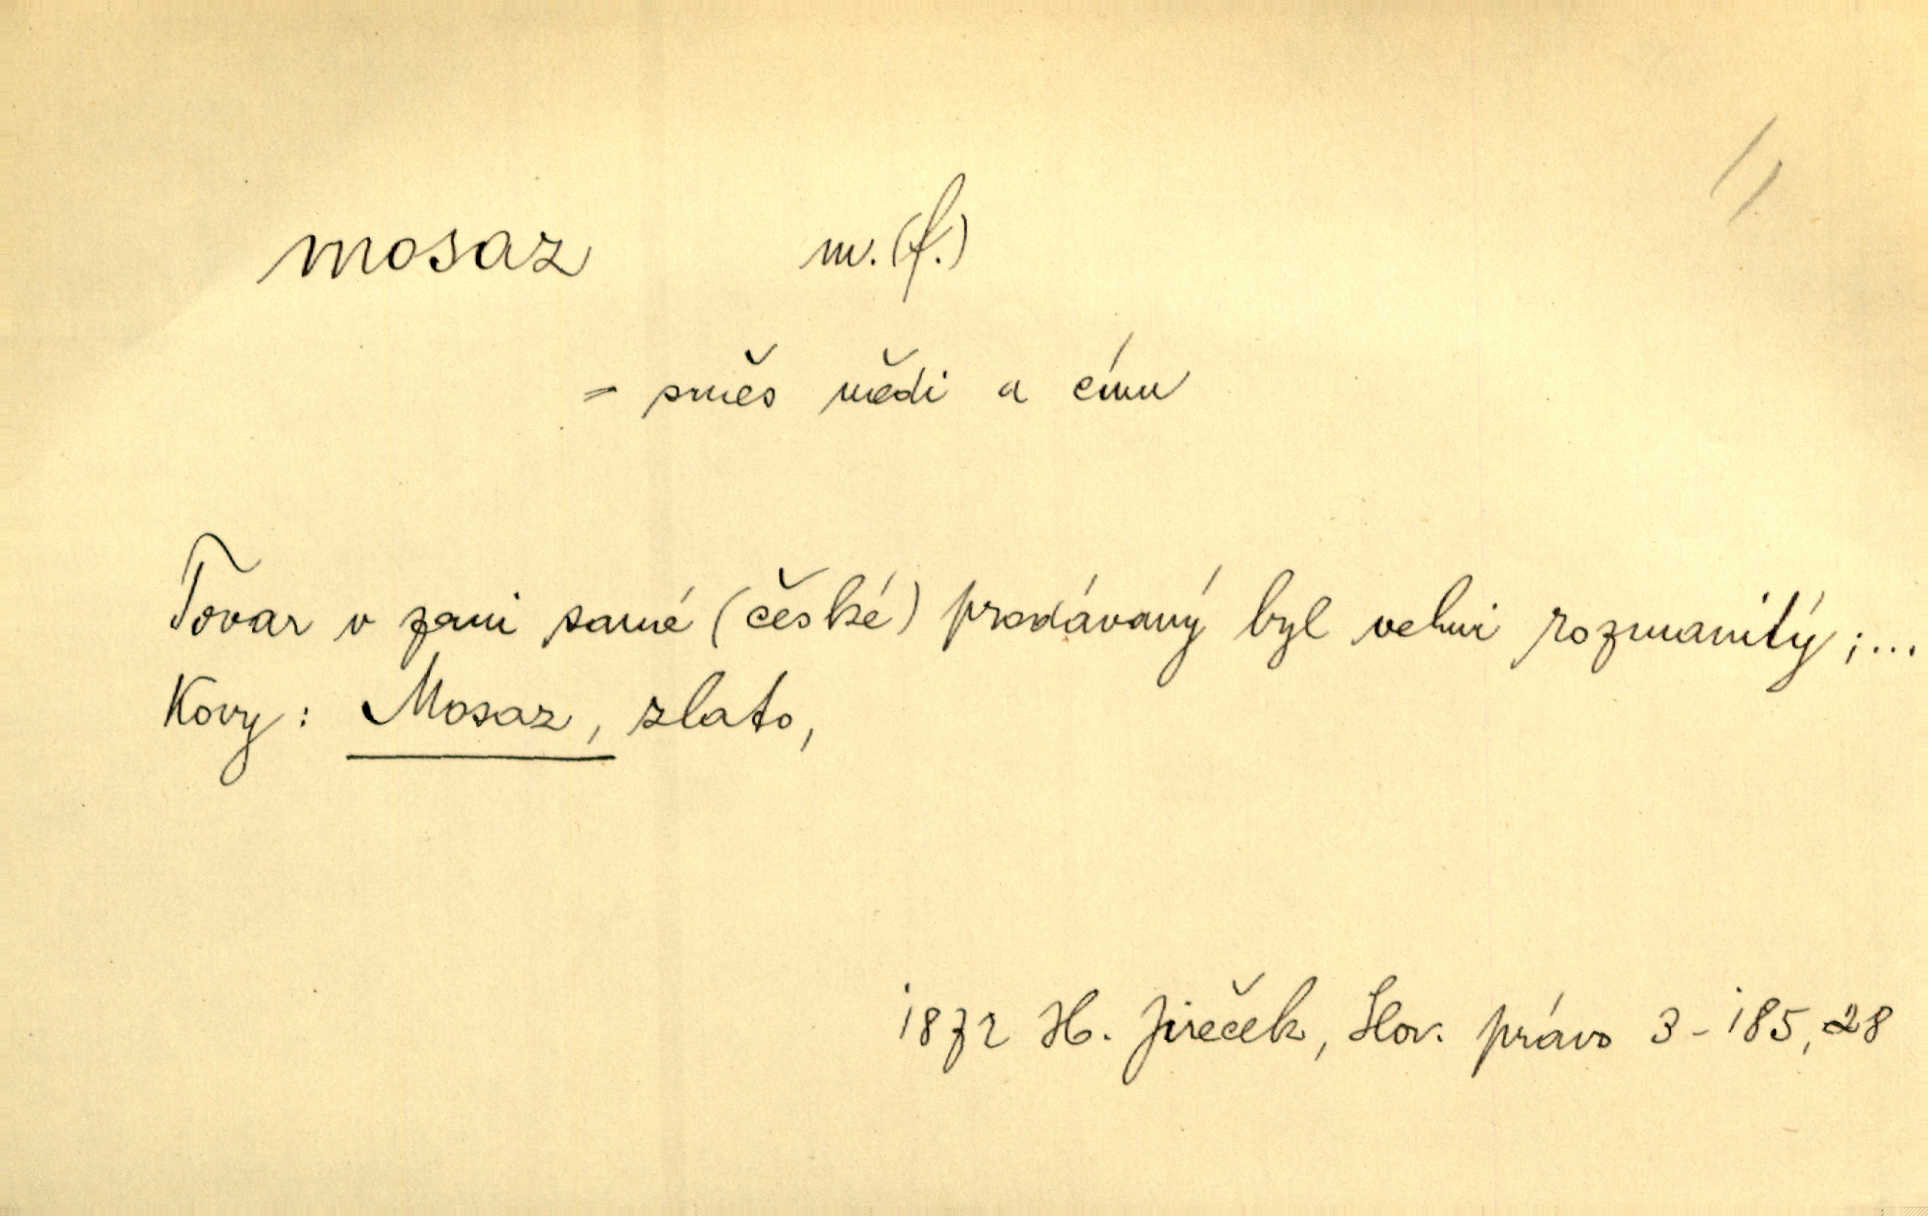 mosaz m. (f.)
= směs mědi a cínu
Tovar v zemi samé (české) prodávaný byl velmi rozmanitý; ...
Kovy: Mosaz, zlato,
1872 H. Jireček, Slov. právo 3-185,28